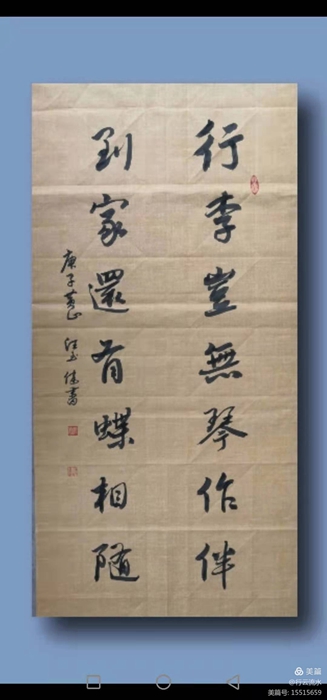 行李豈無琴作伴
到家還有蝶相隨
庚子黄山
書
美篇
@行云流水
美篇号: 15515659